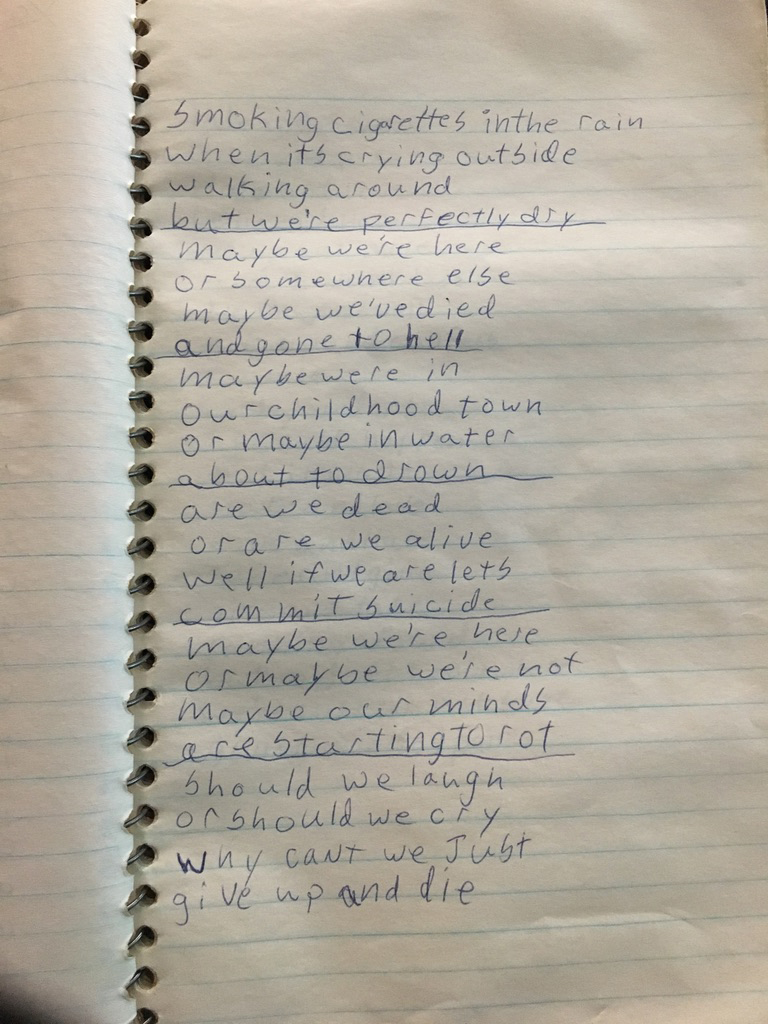 Smoking cigarettes inthe rain
when its crying outside
walking around
but we're perfectly dry
maybe we're here
or somewhere else
maybe we've died
and gone to hell
maybe were in
our childhood town
or maybe in water
about to drown
are we dead
or are we alive
well if we are lets
commit suicide
maybe we're here
or maybe we're not
maybe our minds
are starting to rot
should we laugh
or should we cry
why cant we Just
give up and die